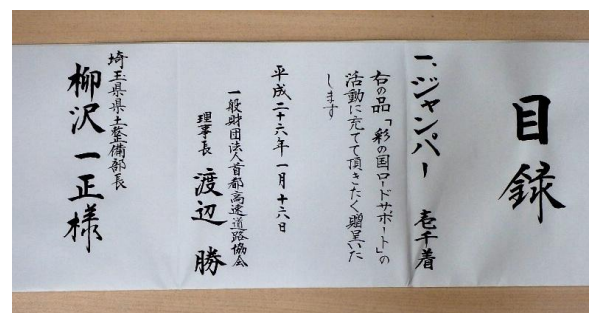 目録
一、ジャンパー 壱千着
右の品「彩の国ロードサポート」の
活動に充てて頂きたく贈呈いた
します
平成二十六年一月十六日
一般財団法人首都高速道路協会
理事長 渡辺 勝
埼玉県県土整備部長
柳沢一正様